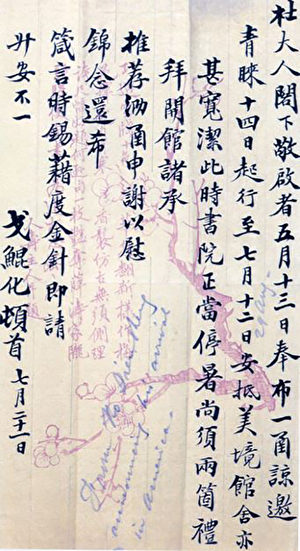 杜大人閣下敬啟者五月十三日奉布一函諒邀
青睞十四日起行至七月十二日安抵美境館舍亦
甚寬潔此時書院正當停暑尚須兩箇禮
拜開館諸承
推荐泐函申謝以慰
錦念還希
箴言時錫藉度金針即請
升安不一
戈鯤化頓首 七月二十一日
announcing his arrival
in America.